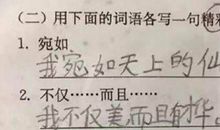 (二)用下面的词语各写一句精
1. 宛如
我宛如天上的仙
2. 不仅……而且……
我不仅美而且有